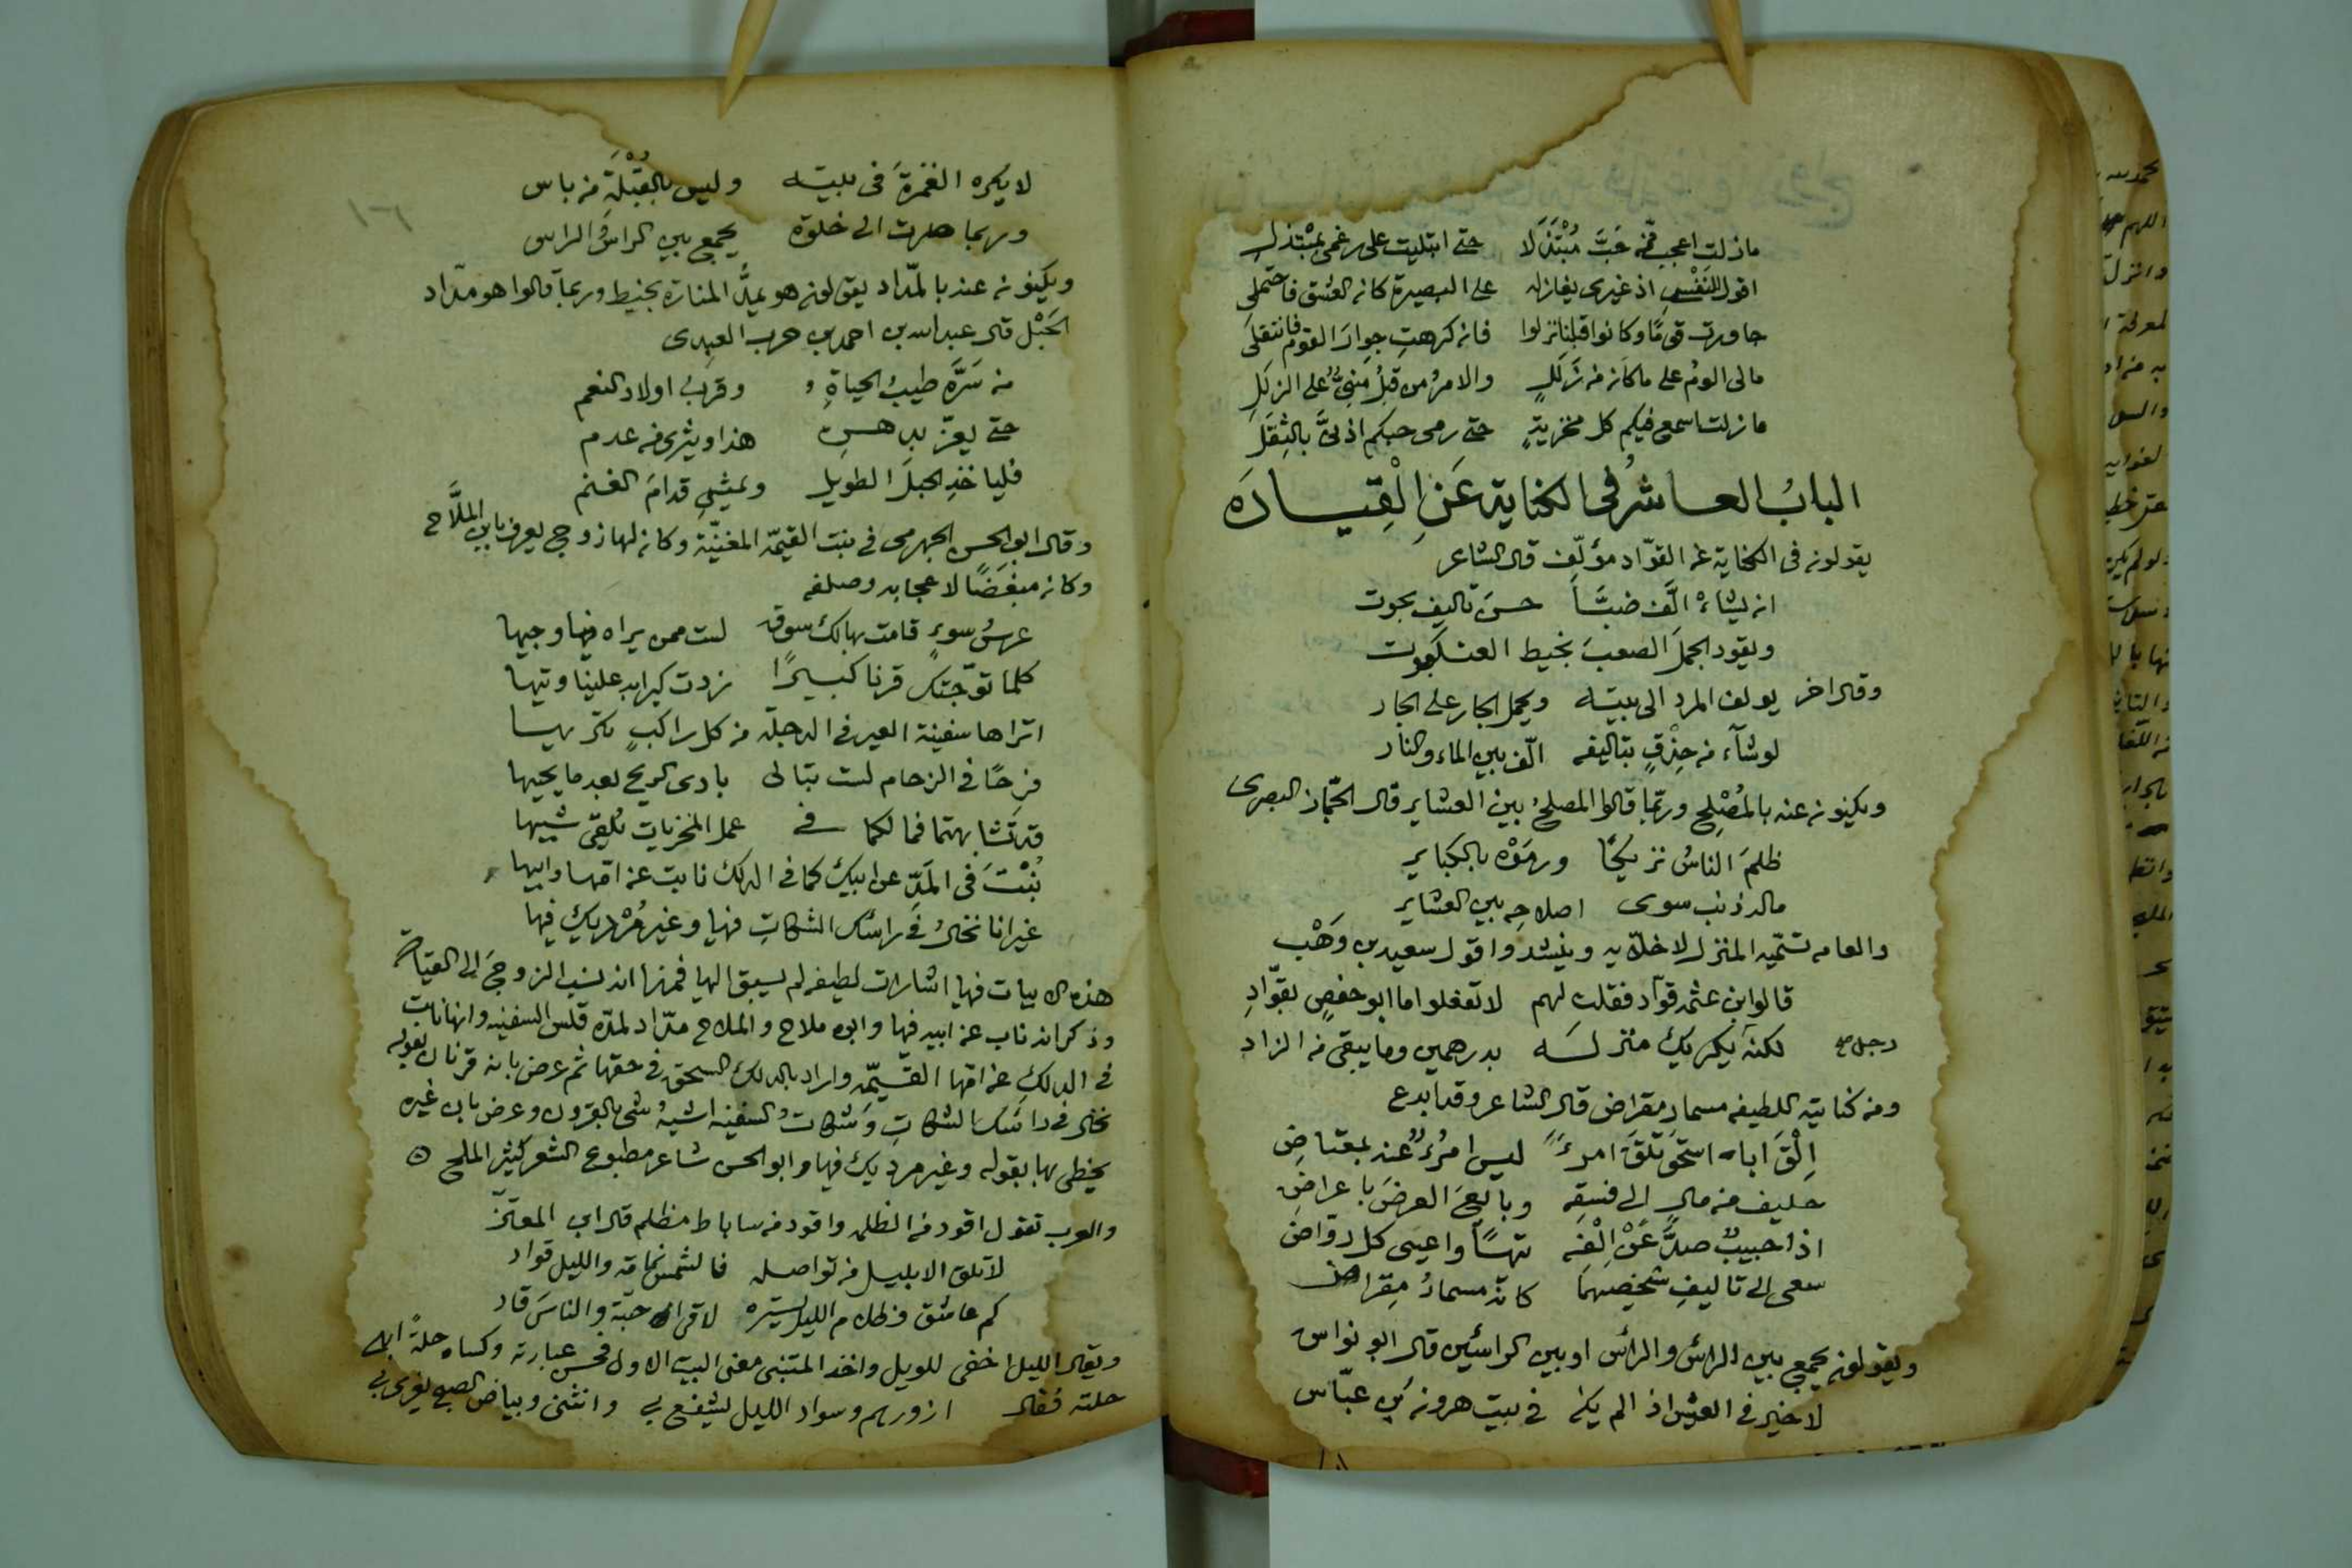 مازلت اعجب ممن حَبَّ مُبْتَذَلا   حتى ابتليت على رغمى بمبتذل
اقول للنفس اذ غيرى يغازله   على البصيرة كان العشق فاحتملى
جاورت قومًا وكانوا قبلنا نزلوا   فان كرهتِ جوارَ القوم فانتقلى
مالى الوم على ماكان من زللٍ   والامر من قبلُ مبنىٌّ على الزلل
مازلت اسمع فيكم كل مخزيةٍ   حتى رمى حبكم اذنىَّ بالثقل
البابُ العاشرُ فى الكناية عَنِ الْقِيادَه
يقولون فى الكناية عن القوّاد مؤلّف قال الشاعر
ان يشاءْ الَّف ضبًّا   حسنَ تاليف بحوت
ويقود الجملَ الصعبَ بخيط العنكبوت
وقال اخر   يولف المرد الى بيته   ويحمل الجار على الجار
لوشآء من حِذْقٍ بتاليفه   الّف بين الماء والنار
ويكنون عنه بالمُصْلِح وربّما قالوا المصلحُ بين العشاير قال الجمّاز البصرى
ظلمَ الناسُ نزيحًا   ورمَوْه بالكباير
ماله ذنب سوى   اصلاحِه بين العشاير
والعامه تسمّيه المنزل لاخلّايه وينشدوا قول سعيد بن وَهْب
قالوا ابن عثمه قوّاد فقلت لهم   لا تغفلوا ما ابو حفصٍ بقوّادِ
لكنه يكريك منزلَه   بدرهمين وما يبقى من الزاد
رجل صح
ومن كنايته اللطيفه مسمار مقراض قال الشاعر وقد ابدع
اِلْقَ اباه اسحق تلقَ امرءً   ليس امرُءٌ عنه بمعتاضِ
حليف من مال الى فسقه   وبايعَ العرضَ باعراضِ
اذا حبيبٌ صدَّ عَنْ اِلْفِه   تيهًا واعيى كل روّاض
سعى الى تاليفِ شخصيهما   كانه مسمارُ مِقراض
ويقولون يجمع بين الراس والراس او بين الراسين قال ابو نواس
لاخير فى العيش اذ الم يكن   فى بيت هرون بن عبّاس
١٦
لايكره الغمزةَ فى بيته   وليس بالقُبْلَة من باس
وربما صارت الى خلوة   يجمع بين الراس والراس
ويكنون عنه بالمدّاد يقولون هو يمدُّ المنارة بخيط وربما قالوا هو مدّاد
الحَبْل قال عبدالله بن احمد بن حرب العبدى
من سَرَّه طيبُ الحياةِ   وقربُ اولاد النعم
حتى يعزّ به   هذا ويثرى من عدم
فليأخذِ الحبلَ الطويل   ويمشى قدامَ الغنم
وقال ابو الحسن الجهرمى فى بنت القيمّة المغنيّة وكان لها زوج يعرف بابن الملَّاح
وكان مبغَضًا لاعجابه وصلفه
عرسُ سوءٍ قامت بها لك سوق   لست ممن يراه فيها وجيها
كلما توّجتك قرنا كبيرًا   زدت كبرا به علينا وتيها
اتراها سفينة العير فى الدجلة من كل راكبٍ تكريها
فرحًا فى الزحام لست تبالى   بادى الريح بعد ما يحييها
قد تشابهتما فمالكما فى   عمل المخزيات تلقى شبيها
نُبْتَ فى المَدّ عن ابيك كما فى الدلك نابت عن امّها وابيها
غير انا نخالُ فى راسك الشكاتِ فيها وغير مُرْديك فيها
هذه الابيات فيها اشارات لطيفه لم يسبق اليها فمنها انه نسب الزوجَ الى القيادة
وذكر انه ناب عن ابيه فيها وابوه ملاح والملاح مدّاد لمدّه قلس السفينه وانها نابت
فى الدلكِ عن امّها القيّمه واراد بالدلك السحق فى حقها ثم عرض بانه قرنان بقوله
نخال فى راسك الشكاتِ وشكاتُ السفينه اشبهُ شى بالقرون وعرض بان غيره
يخطى بها بقوله وغير مرديك فيها وابو الحسن شاعر مطبوع الشعر كثير الملح ۞
والعرب تقول اقود من الظلمه واقود من ساباط مظلم قال ابن المعتزّ
لاتلق الا بليل من تواصله   فالشمس نمّامة والليل قواد
كم عاشق وظلام الليل يستره   لاقى احبّة والناسَ قاد
ويقال الليل اخفى للويل واخذ المتنبى معنى البيت الاول فحسن عبارته وكساه حلةً ابهى
حلته فقال   ازورهم وسواد الليل يشفع بى   وانثنى وبياض الصبح يغرى بى